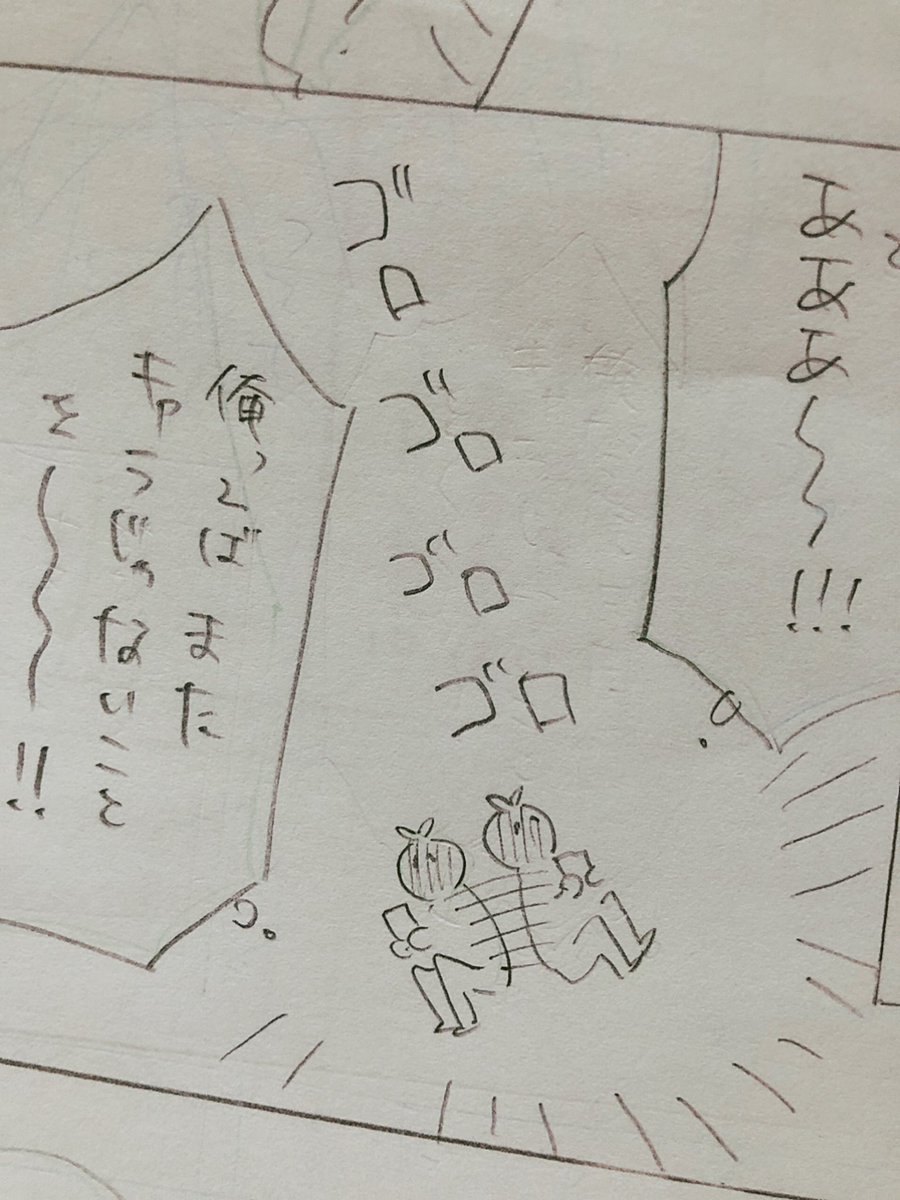 あああ〜〜!!!
ゴロゴロゴロゴロ
俺ってばまた
キャラじゃないこと
を〜〜〜!!